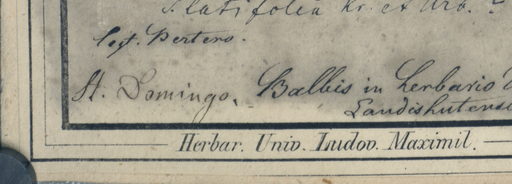 latifolia Kr. et Urb. ?
leg. Bertero.
St. Domingo. Balbis in herbario
Landishutensi
Herbar. Univ. Ludov. Maximil.